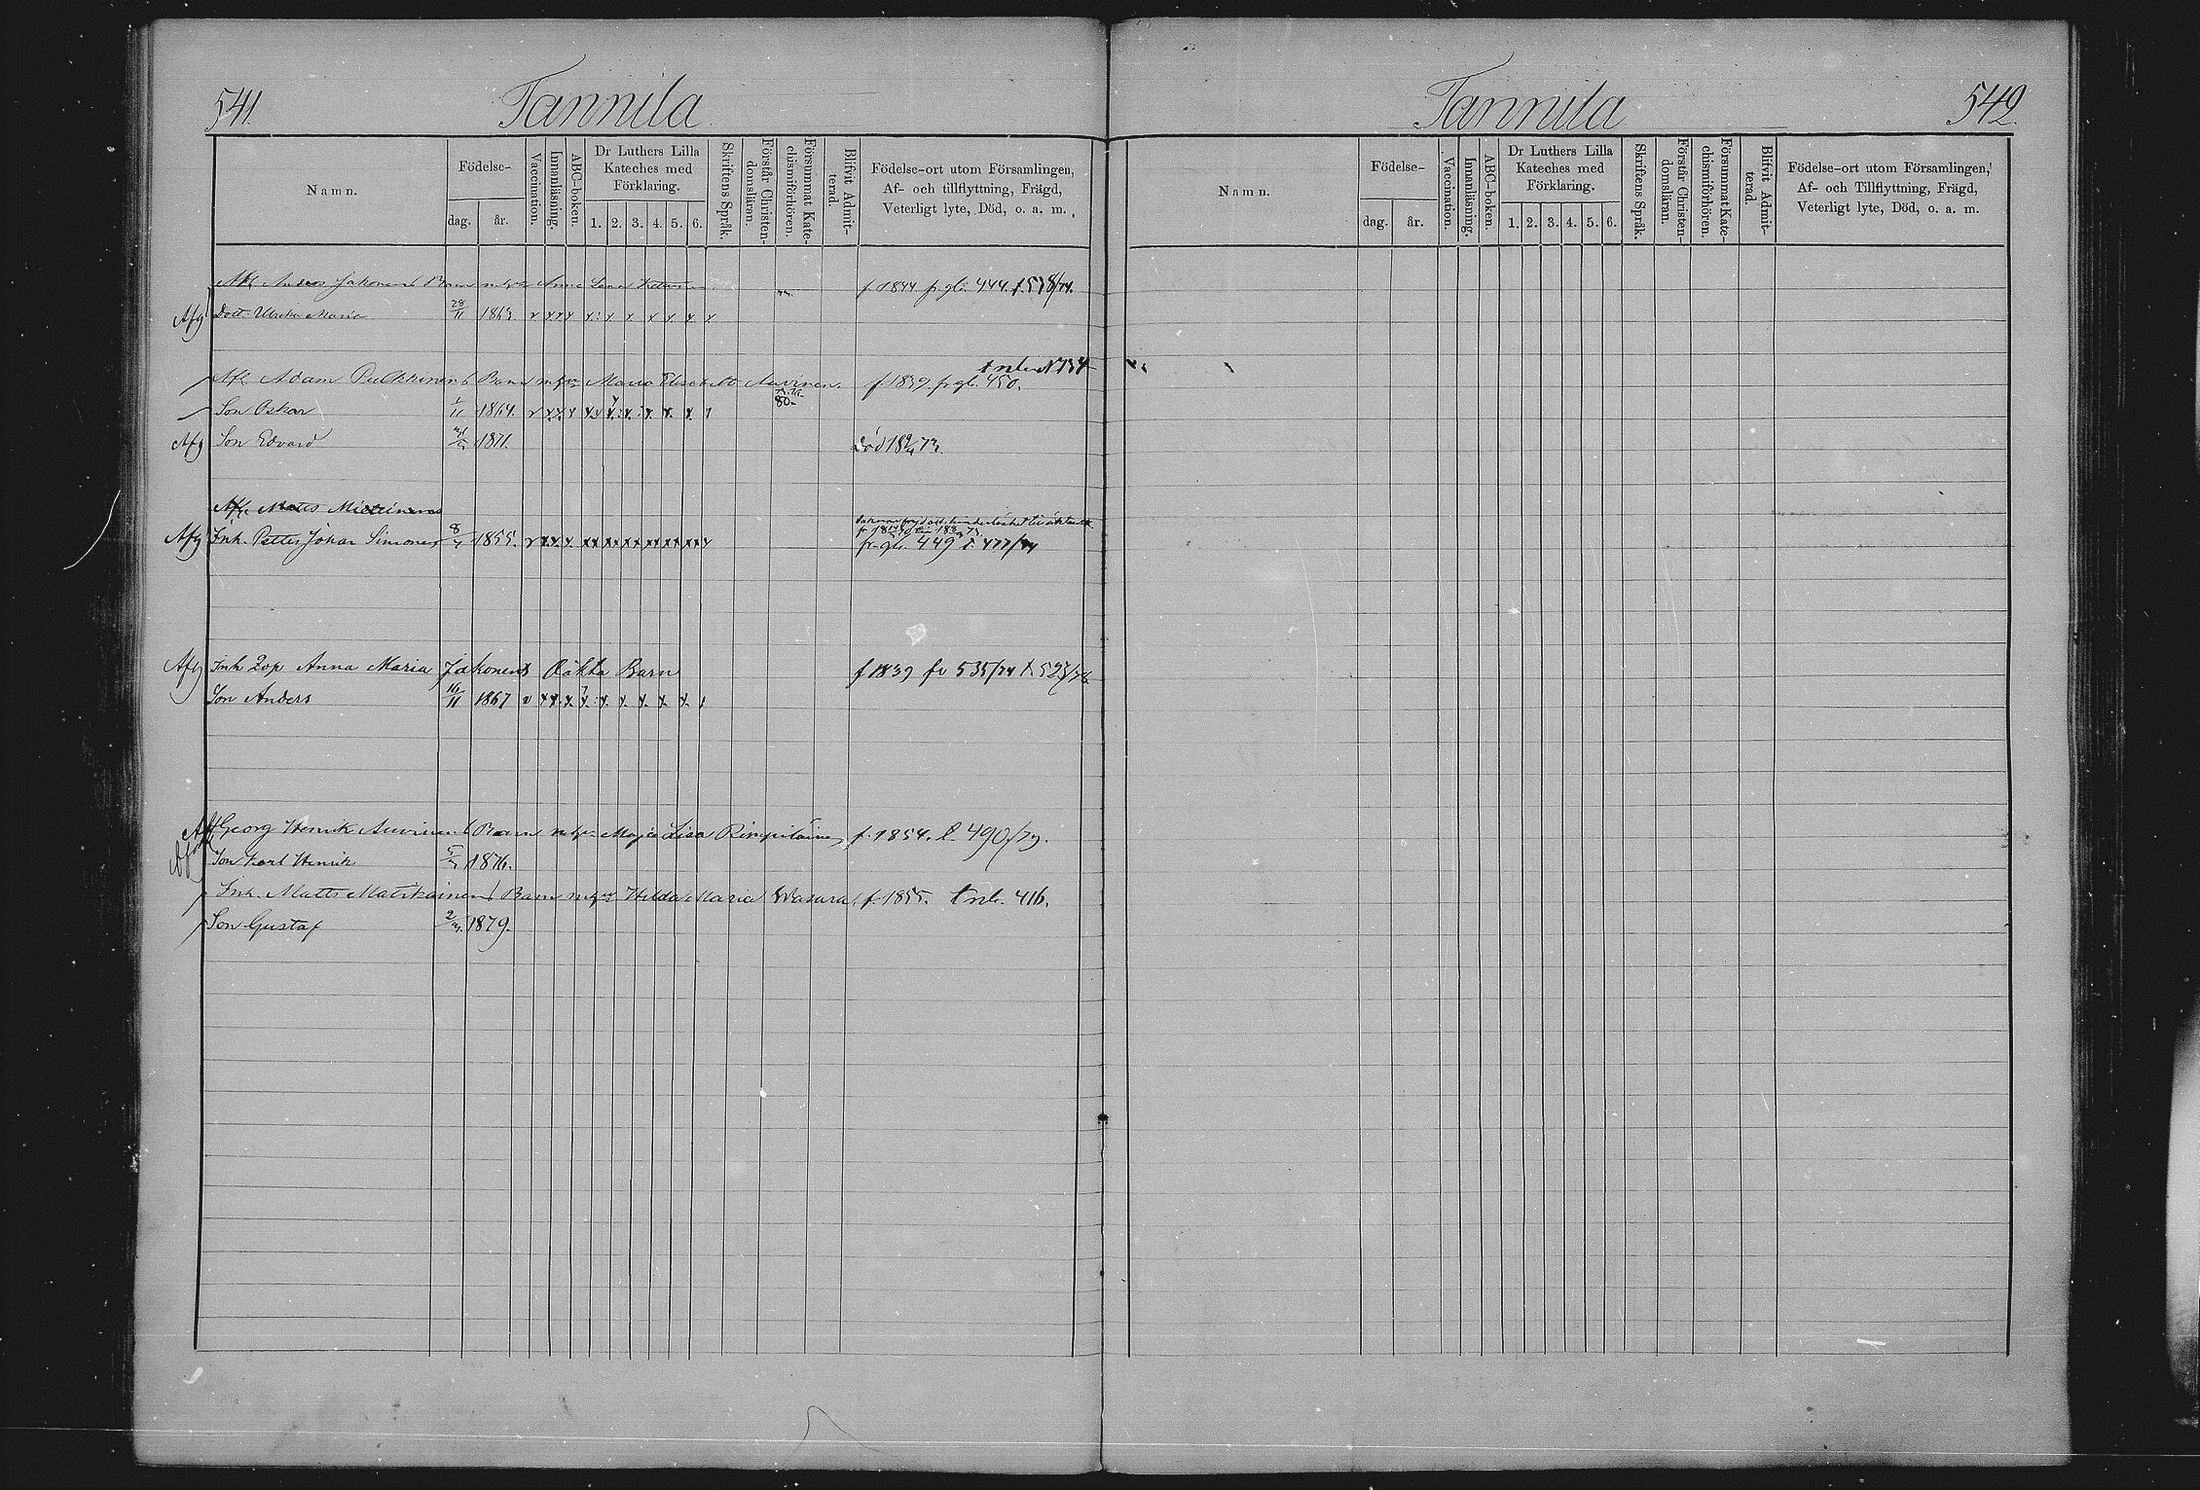 541.
Tannila
Namn.
Födelse-
dag.
år.
Vaccination.
Innanläsning.
ABC-boken.
Dr Luthers Lilla
Kateches med
Förklaring.
1. 2. 3. 4. 5. 6.
Skriftens Språk.
Förstår Christen-
domsläran.
Försummat Kate-
chismiförhören.
Blifvit Admit-
terad.
Födelse-ort utom Församlingen,
Af- och tillflyttning, Frägd,
Veterligt lyte, Död, o. a. m.
Anders Jakonens Barn m. Anna Lena f 1844 fr. gb. 444. t. 518/74.
Afg Dott. Ulrika Maria 28/11 1863
t nb. N 734
Afl. Adam Pulkkinens Barn m. Maria Elisabeth Auvinen. f 1839. fr. gb. 450.
80-
Son Oskar 1/11 1864.
Afg Son Edvard 1871. Död 73.
Afl. Matts
Afg Inh. Petter Johan Simonen 8/4 1855. fr. gb. 449 t. 477/74
Afg Inh. Lop. Anna Maria Jakonens Oäkta Barn f 1839 fr 535/74 t 523/76
Son Anders 16/11 1867
Georg Henrik Auvinens Barn m. Maja Lisa f. 1854. t. 490/79.
Son Karl Henrik 1876.
Inh. Matts Matikainens Barn m. Hilda Maria Wasara, f. 1855. t nb. 416.
Son Gustaf 1879.
Tannila
542.
Namn.
Födelse-
dag.
år.
Vaccination.
Innanläsning.
ABC-boken.
Dr Luthers Lilla
Kateches med
Förklaring.
1. 2. 3. 4. 5. 6.
Skriftens Språk.
Förstår Christen-
domsläran.
Försummat Kate-
chismiförhören.
Blifvit Admit-
terad.
Födelse-ort utom Församlingen,
Af- och Tillflyttning, Frägd,
Veterligt lyte, Död, o. a. m.